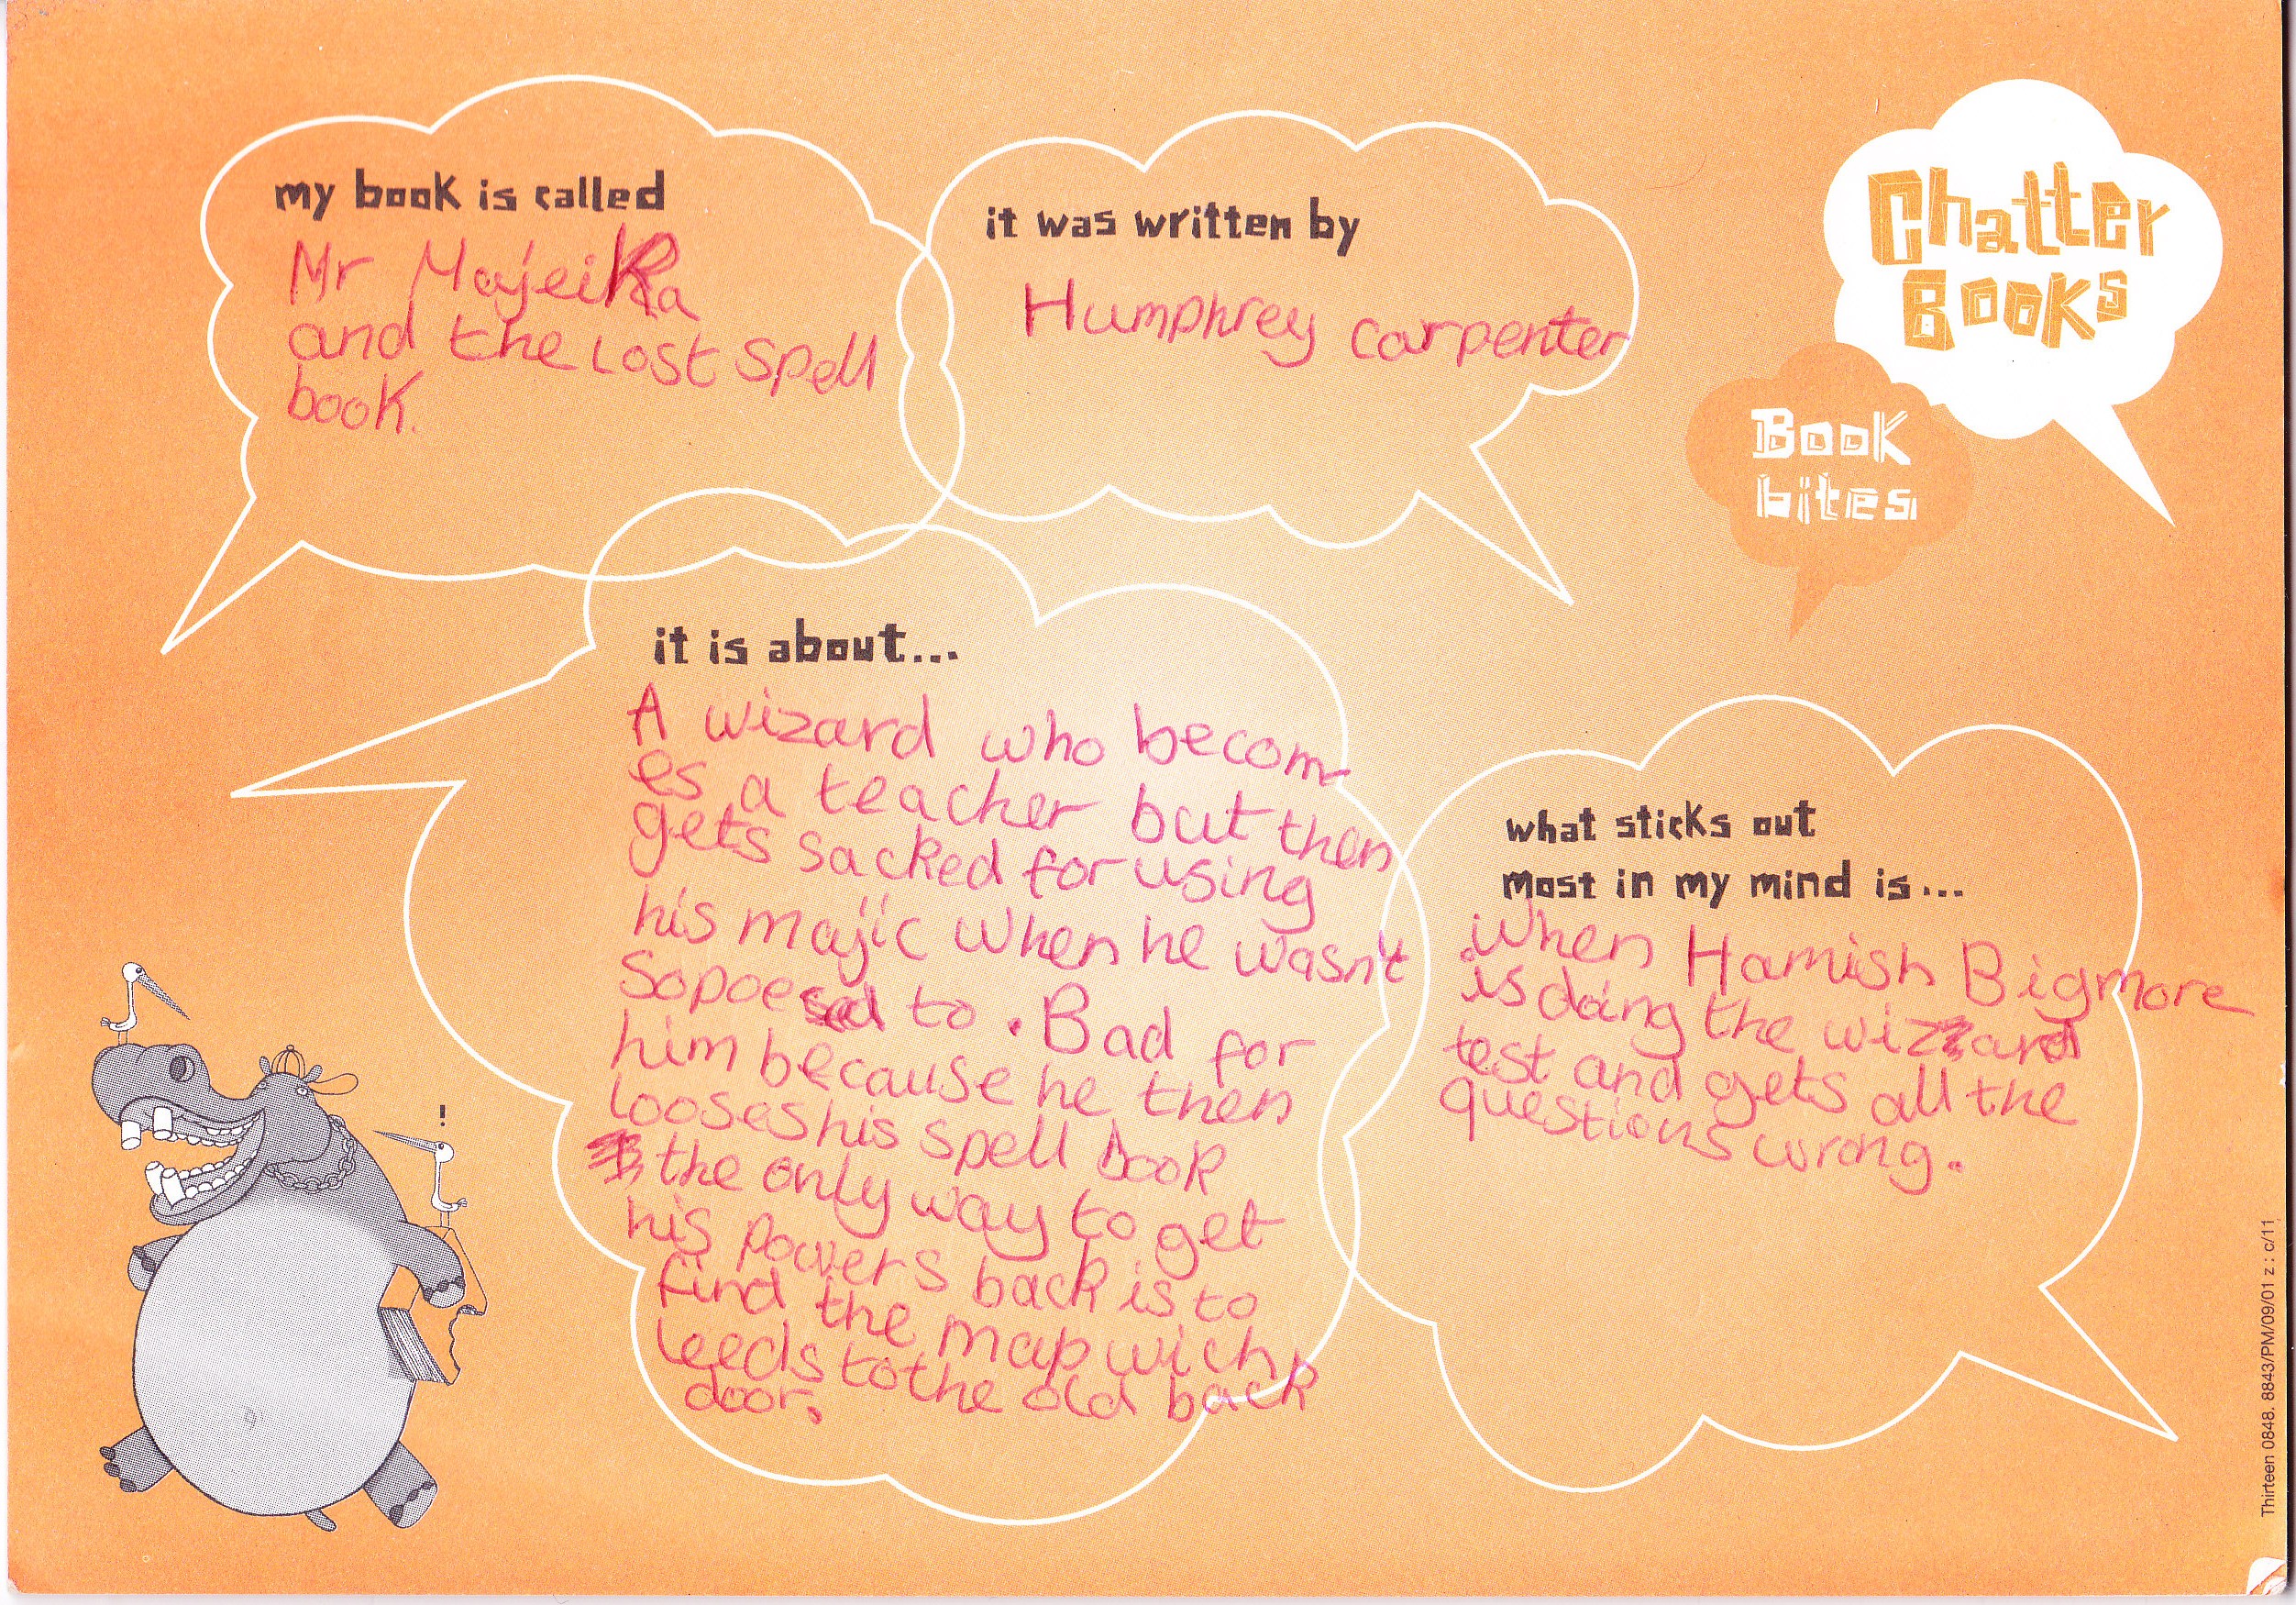 my book is called
Mr Majeika
and the Lost Spell
book.
it was written by
Humphrey carpenter
Chatter
Books
Book
bites
it is about...
A wizard who becom-
es a teacher but then
gets sacked for using
his majic when he wasn't
Sopoesed to. Bad for
him because he then
looses his spell book
the only way to get
his powers back is to
find the map wich
leeds to the old back
door.
what sticks out
most in my mind is...
when Hamish Bigmore
is doing the wizard
test and gets all the
questions wrong.
!
Thirteen 0848. 8843/PM/09/01 z : c/11